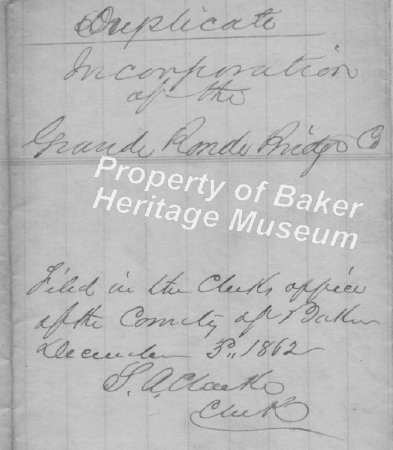 Duplicate
Incorporation
of the
Grande Ronde Bridge Co
Property of Baker
Heritage Museum
Filed in the Clerks office
of the County of Baker
December 3,, 1862
S. A. Clarke
Clerk